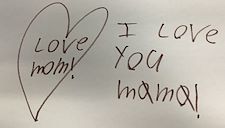 LOVE
mom!
I LOVE
YOU
mama!